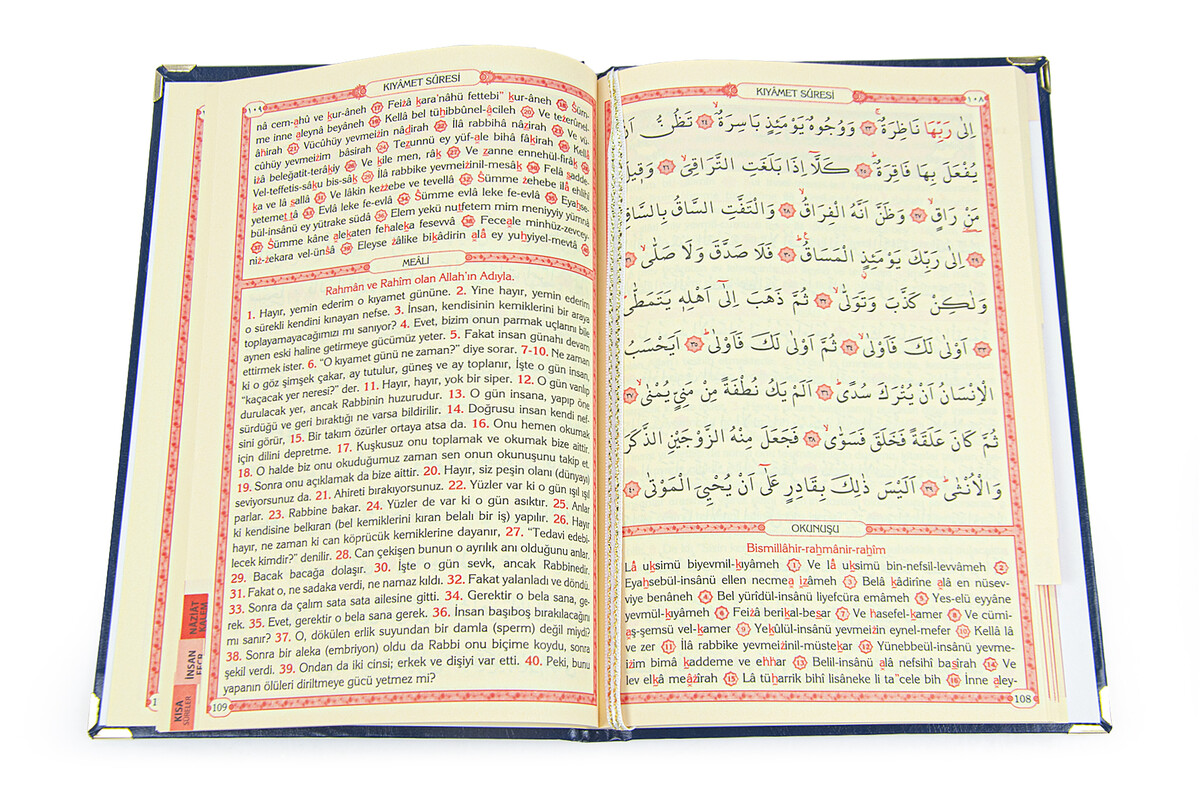 KIYÂMET SÛRESİ
١٠٨
اِلٰى رَبِّهَا نَاظِرَةٌۚ ﴿٢٣﴾ وَوُجُوهٌ يَوْمَئِذٍ بَاسِرَةٌۙ ﴿٢٤﴾ تَظُنُّ اَنْ
يُفْعَلَ بِهَا فَاقِرَةٌۜ ﴿٢٥﴾ كَلَّٓا اِذَا بَلَغَتِ التَّرَاقِيَۙ ﴿٢٦﴾ وَق۪يلَ
مَنْ رَاقٍۙ ﴿٢٧﴾ وَظَنَّ اَنَّهُ الْفِرَاقُۙ ﴿٢٨﴾ وَالْتَفَّتِ السَّاقُ بِالسَّاقِۙ
﴿٢٩﴾ اِلٰى رَبِّكَ يَوْمَئِذٍ الْمَسَاقُۜ ﴿٣٠﴾ فَلَا صَدَّقَ وَلَا صَلّٰىۙ ﴿٣١﴾
وَلٰكِنْ كَذَّبَ وَتَوَلّٰىۙ ﴿٣٢﴾ ثُمَّ ذَهَبَ اِلٰٓى اَهْلِه۪ يَتَمَطّٰىۜ
﴿٣٣﴾ اَوْلٰى لَكَ فَاَوْلٰىۙ ﴿٣٤﴾ ثُمَّ اَوْلٰى لَكَ فَاَوْلٰىۜ ﴿٣٥﴾ اَيَحْسَبُ
الْاِنْسَانُ اَنْ يُتْرَكَ سُدًىۜ ﴿٣٦﴾ اَلَمْ يَكُ نُطْفَةً مِنْ مَنِيٍّ يُمْنٰىۙ ﴿٣٧﴾
ثُمَّ كَانَ عَلَقَةً فَخَلَقَ فَسَوّٰىۙ ﴿٣٨﴾ فَجَعَلَ مِنْهُ الزَّوْجَيْنِ الذَّكَرَ
وَالْاُنْثٰىۜ ﴿٣٩﴾ اَلَيْسَ ذٰلِكَ بِقَادِرٍ عَلٰٓى اَنْ يُحْيِيَ الْمَوْتٰى ﴿٤٠﴾
OKUNUŞU
Bismillâhir-rahmânir-rahîm
Lâ uksimü biyevmil-kıyâmeh 1 Ve lâ uksimü bin-nefsil-levvâmeh 2
Eyahsebül-insânü ellen necmea izâmeh 3 Belâ kâdirîne alâ en nüsev-
viye benâneh 4 Bel yürîdül-insânü liyefcüra emâmeh 5 Yes-elü eyyâne
yevmül-kıyâmeh 6 Feizâ berikal-besar 7 Ve hasefel-kamer 8 Ve cümi-
aş-şemsü vel-kamer 9 Yekûlül-insânü yevmeizin eynel-mefer 10 Kellâ lâ
ve zer 11 İlâ rabbike yevmeizinil-müstekar 12 Yünebbeül-insânü yevme-
izim bimâ kaddeme ve ehhar 13 Belil-insânü alâ nefsihî basîrah 14 Ve
lev elkâ meâzîrah 15 Lâ tüharrik bihî lisâneke li ta"cele bih 16 İnne aley-
108
KIYÂMET SÛRESİ
١٠٩
nâ cem-ahû ve kur-âneh 17 Feizâ kara'nâhü fettebi" kur-âneh 18 Süm-
me inne aleynâ beyâneh 19 Kellâ bel tühibbûnel-âcileh 20 Ve tezerûnel-
âhirah 21 Vücûhüy yevmeizin nâdirah 22 İlâ rabbihâ nâzirah 23 Ve vü-
cûhüy yevmeizim bâsirah 24 Tezunnü ey yüf-ale bihâ fâkirah 25 Kellâ
izâ beleğatit-terâkıy 26 Ve kîle men, râk 27 Ve zanne ennehül-firâk 28
Vel-teffetis-sâku bis-sâk 29 İlâ rabbike yevmeizinil-mesâk 30 Felâ sadde-
ka ve lâ sallâ 31 Ve lâkin kezzebe ve tevellâ 32 Sümme zehebe ilâ ehlihî
yetemet tâ 33 Evlâ leke fe-evlâ 34 Sümme evlâ leke fe-evlâ 35 Eyahse-
bül-insânü ey yütrake südâ 36 Elem yekü nutfetem mim meniyyiy yümnâ
37 Sümme kâne alekaten fehaleka fesevvâ 38 Feceale minhüz-zevcey-
niz-zekara vel-ünsâ 39 Eleyse zâlike bikâdirin alâ ey yuhyiyel-mevtâ 40
MEÂLİ
Rahmân ve Rahîm olan Allah'ın Adıyla.
1. Hayır, yemin ederim o kıyamet gününe. 2. Yine hayır, yemin ederim
o sürekli kendini kınayan nefse. 3. İnsan, kendisinin kemiklerini bir araya
toplayamayacağımızı mı sanıyor? 4. Evet, bizim onun parmak uçlarını bile
aynen eski haline getirmeye gücümüz yeter. 5. Fakat insan günahı devam
ettirmek ister. 6. "O kıyamet günü ne zaman?" diye sorar. 7-10. Ne zaman
ki o göz şimşek çakar, ay tutulur, güneş ve ay toplanır, İşte o gün insan,
"kaçacak yer neresi?" der. 11. Hayır, hayır, yok bir siper. 12. O gün varılıp
durulacak yer, ancak Rabbinin huzurudur. 13. O gün insana, yapıp öne
sürdüğü ve geri bıraktığı ne varsa bildirilir. 14. Doğrusu insan kendi nef-
sini görür, 15. Bir takım özürler ortaya atsa da. 16. Onu hemen okumak
için dilini depretme. 17. Kuşkusuz onu toplamak ve okumak bize aittir.
18. O halde biz onu okuduğumuz zaman sen onun okunuşunu takip et.
19. Sonra onu açıklamak da bize aittir. 20. Hayır, siz peşin olanı (dünyayı)
seviyorsunuz da. 21. Ahireti bırakıyorsunuz. 22. Yüzler var ki o gün ışıl ışıl
parlar. 23. Rabbine bakar. 24. Yüzler de var ki o gün asıktır. 25. Anlar
ki kendisine belkıran (bel kemiklerini kıran belalı bir iş) yapılır. 26. Hayır
hayır, ne zaman ki can köprücük kemiklerine dayanır, 27. "Tedavi edebi-
lecek kimdir?" denilir. 28. Can çekişen bunun o ayrılık anı olduğunu anlar.
29. Bacak bacağa dolaşır. 30. İşte o gün sevk, ancak Rabbinedir.
31. Fakat o, ne sadaka verdi, ne namaz kıldı. 32. Fakat yalanladı ve döndü.
33. Sonra da çalım sata sata ailesine gitti. 34. Gerektir o bela sana, ge-
rek. 35. Evet, gerektir o bela sana gerek. 36. İnsan başıboş bırakılacağını
mı sanır? 37. O, dökülen erlik suyundan bir damla (sperm) değil miydi?
38. Sonra bir aleka (embriyon) oldu da Rabbi onu biçime koydu, sonra
şekil verdi. 39. Ondan da iki cinsi; erkek ve dişiyi var etti. 40. Peki, bunu
yapanın ölüleri diriltmeye gücü yetmez mi?
109
NÂZİÂT
KALEM
İNSAN
FECR
KISA
SÛRELER